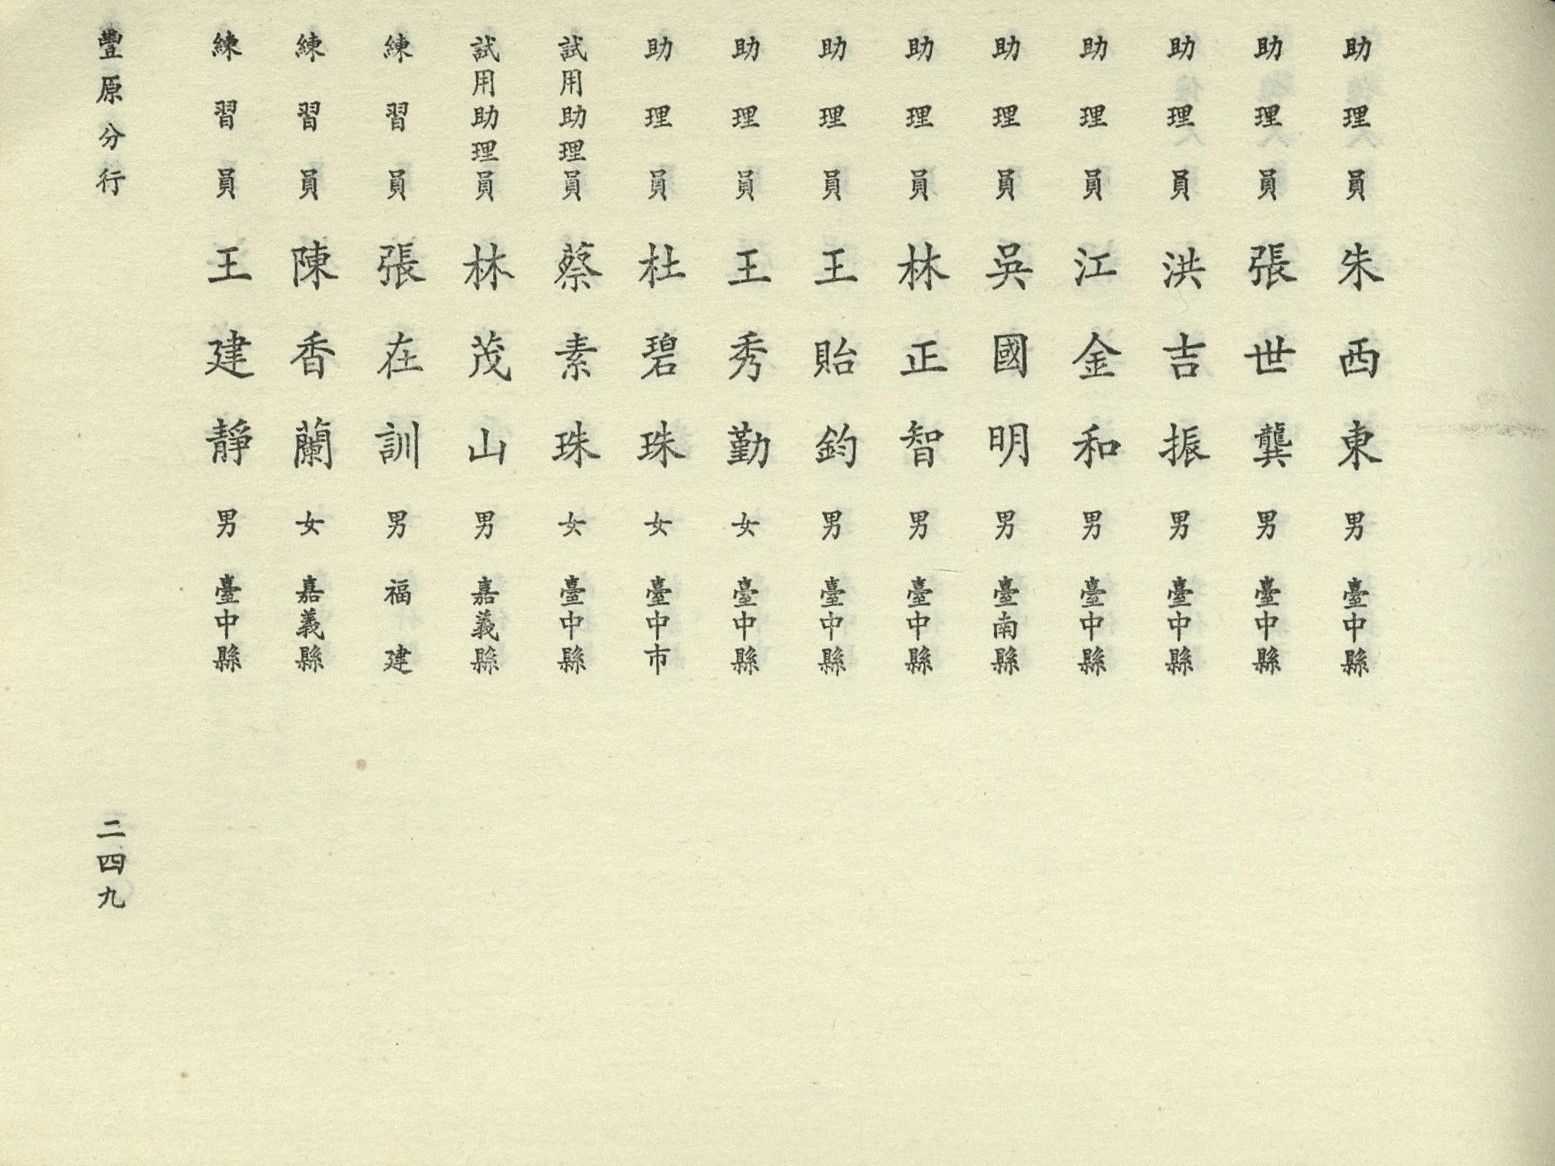 助理員 朱西東 男 臺中縣
助理員 張世龔 男 臺中縣
助理員 洪吉振 男 臺中縣
助理員 江金和 男 臺中縣
助理員 吳國明 男 臺南縣
助理員 林正智 男 臺中縣
助理員 王貽鈞 男 臺中縣
助理員 王秀勤 女 臺中縣
助理員 杜碧珠 女 臺中市
試用助理員 蔡素珠 女 臺中縣
試用助理員 林茂山 男 嘉義縣
練習員 張在訓 男 福建
練習員 陳香蘭 女 嘉義縣
練習員 王建靜 男 臺中縣
豐原分行 二四九